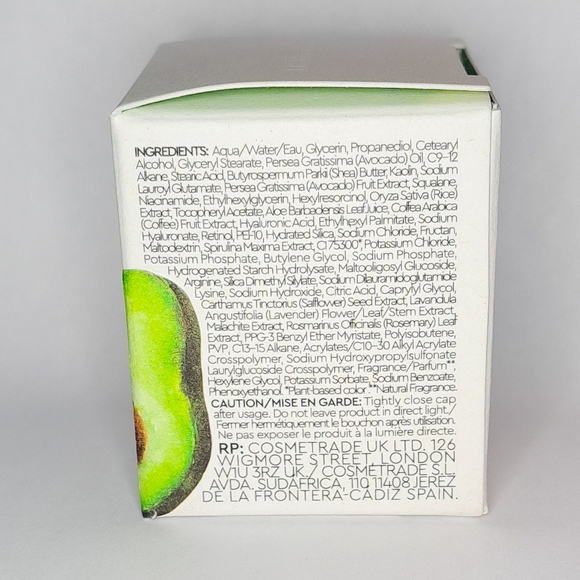 INGREDIENTS: Aqua/Water/Eau, Glycerin, Propanediol, Cetearyl
Alcohol, Glyceryl Stearate, Persea Gratissima (Avocado) Oil, C9-12
Alkane, Stearic Acid, Butyrospermum Parkii (Shea) Butter, Kaolin, Sodium
Lauroyl Glutamate, Persea Gratissima (Avocado) Fruit Extract, Squalane,
Niacinamide, Ethylhexylglycerin, Hexylresorcinol, Oryza Sativa (Rice)
Extract, Tocopheryl Acetate, Aloe Barbadensis Leaf Juice, Coffea Arabica
(Coffee) Fruit Extract, Hyaluronic Acid, Ethylhexyl Palmitate, Sodium
Hyaluronate, Retinol, PEI-10, Hydrated Silica, Sodium Chloride, Fructan,
Maltodextrin, Spirulina Maxima Extract, CI 75300*, Potassium Chloride,
Potassium Phosphate, Butylene Glycol, Sodium Phosphate,
Hydrogenated Starch Hydrolysate, Maltooligosyl Glucoside,
Arginine, Silica Dimethyl Silylate, Sodium Dilauramidoglutamide
Lysine, Sodium Hydroxide, Citric Acid, Caprylyl Glycol,
Carthamus Tinctorius (Safflower) Seed Extract, Lavandula
Angustifolia (Lavender) Flower/Leaf/Stem Extract,
Malachite Extract, Rosmarinus Officinalis (Rosemary) Leaf
Extract, PPG-3 Benzyl Ether Myristate, Polyisobutene,
PVP, C13-15 Alkane, Acrylates/C10-30 Alkyl Acrylate
Crosspolymer, Sodium Hydroxypropylsulfonate
Laurylglucoside Crosspolymer, Fragrance/Parfum**,
Hexylene Glycol, Potassium Sorbate, Sodium Benzoate,
Phenoxyethanol. *Plant-based color. **Natural Fragrance.
CAUTION/MISE EN GARDE: Tightly close cap
after usage. Do not leave product in direct light./
Fermer hermétiquement le bouchon après utilisation.
Ne pas exposer le produit à la lumière directe.
RP: COSMETRADE UK LTD. 126
WIGMORE STREET. LONDON
W1U 3RZ UK / COSMETRADE S.L.
AVDA. SUDÁFRICA, 11Q 11408 JEREZ
DE LA FRONTERA-CÁDIZ SPAIN.